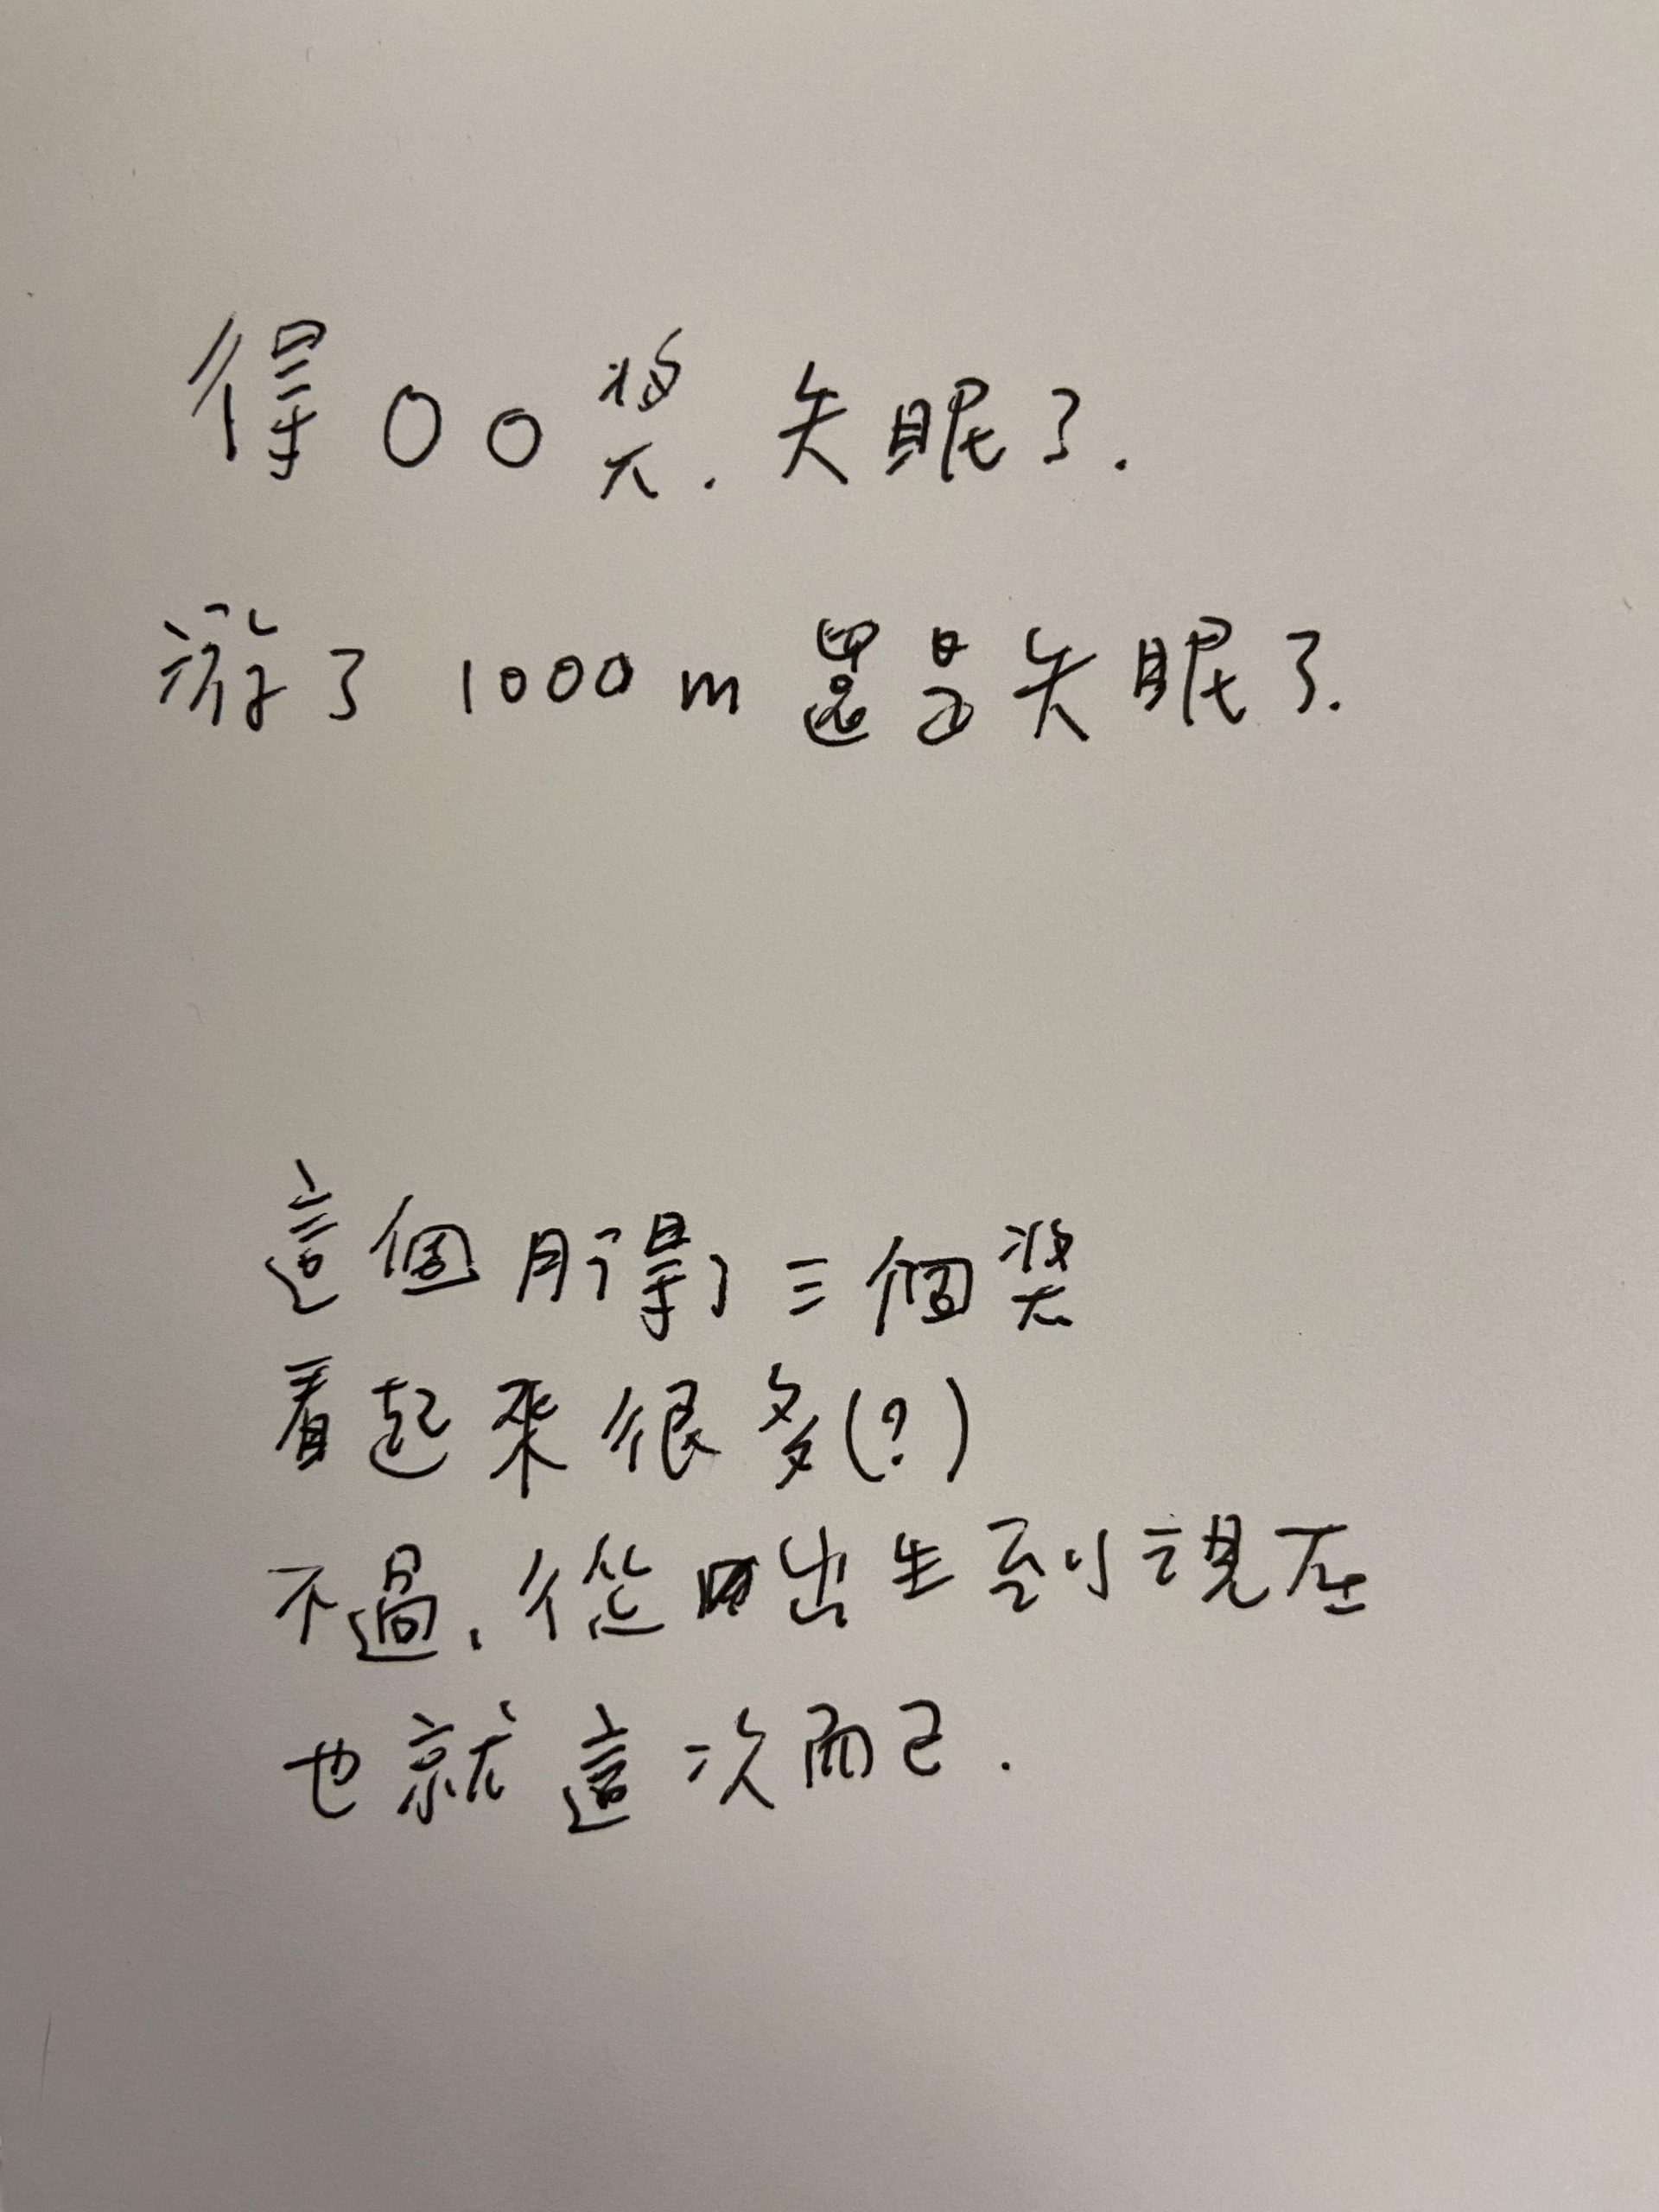 得OO獎.失眠了.
游了1000m還是失眠了.
這個月得了三個獎
看起來很多(?)
不過,從出生到現在
也就這次而已.